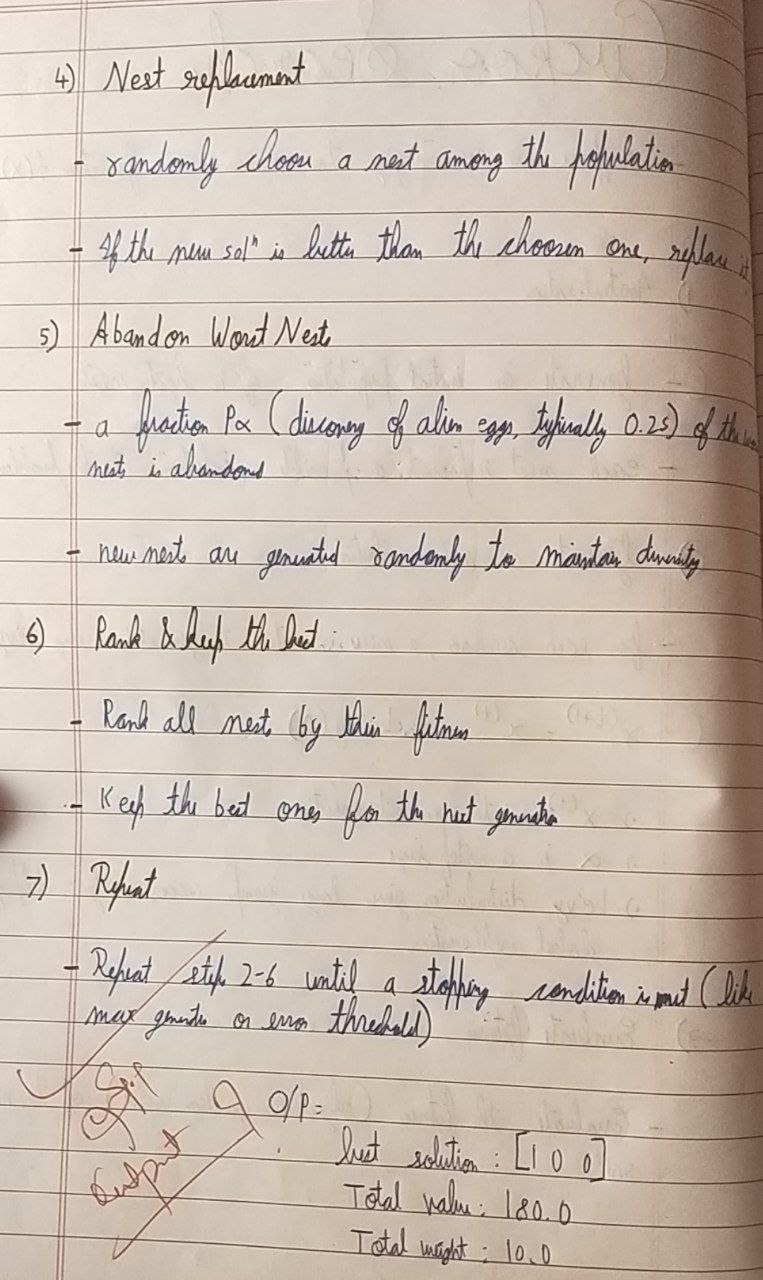 4) Nest replacement
- randomly choose a nest among the population
- If the new solⁿ is better than the choosen one, replace it
5) Abandon Worst Nests
- a fraction Pα (discovery of alien eggs, typically 0.25) of the
nests is abandoned
- new nests are generated randomly to maintain diversity
6) Rank & keep the best.
- Rank all nests by their fitness
- Keep the best ones for the next generation
7) Repeat
- Repeat steps 2-6 until a stopping condition is met (like
max generatn or error threshold)
O/P =
Output
best solution : [1 0 0]
Total value : 180.0
Total weight : 10.0